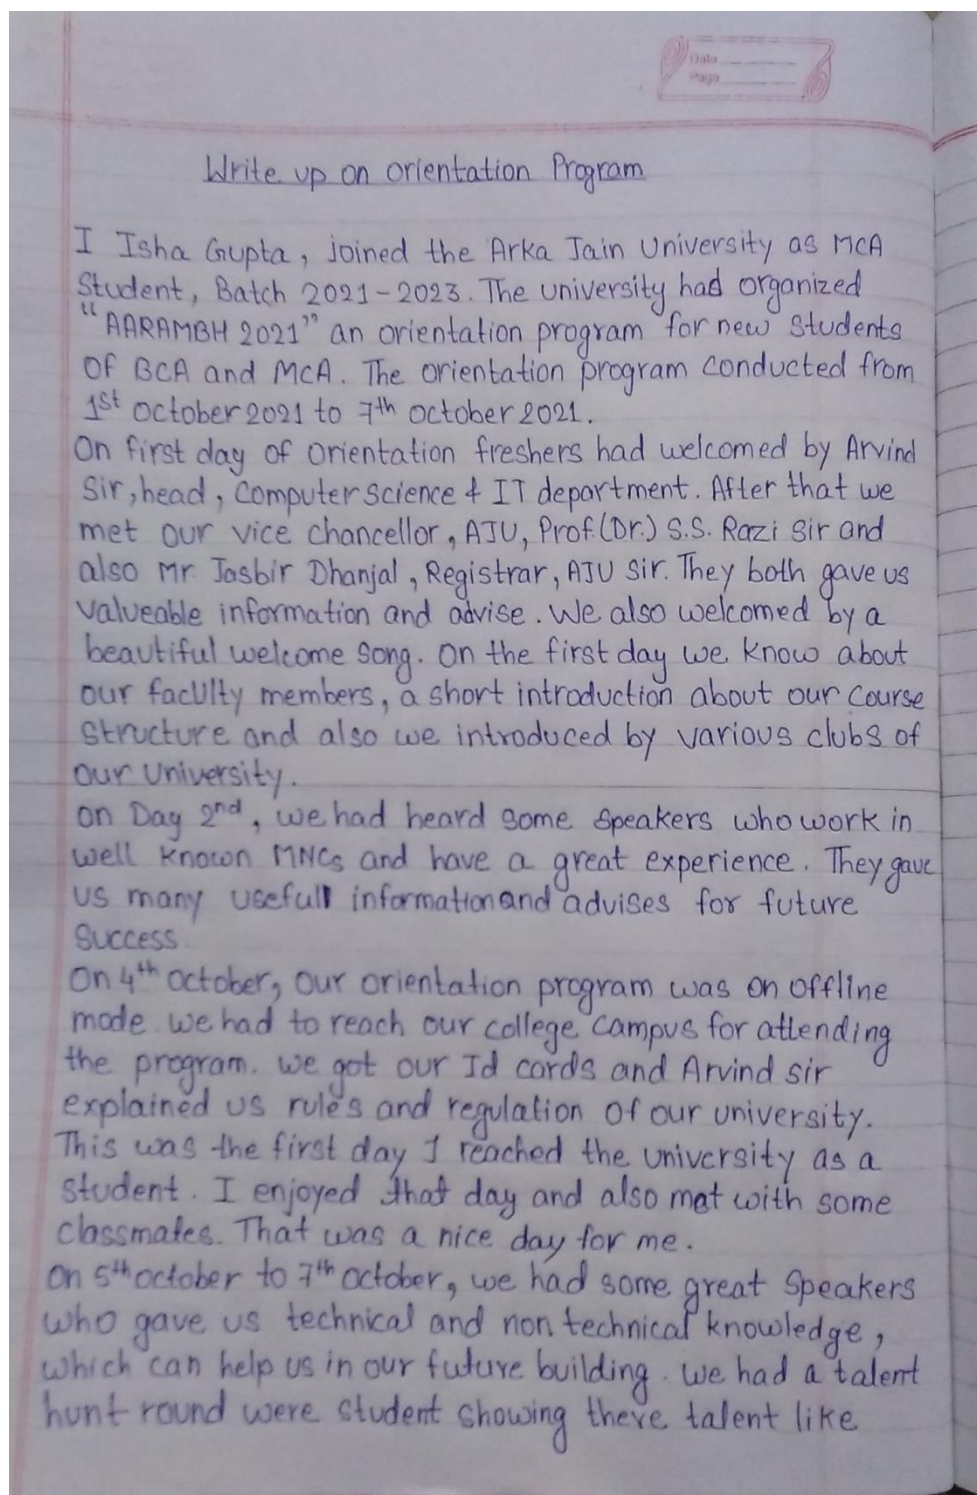 Date
Page
Write up on orientation Program
I Isha Gupta, joined the Arka Jain University as MCA
Student, Batch 2021-2023. The university had organized
"AARAMBH 2021" an orientation program for new students
of BCA and MCA. The orientation program conducted from
1st october 2021 to 7th october 2021.
On first day of orientation freshers had welcomed by Arvind
Sir, head, Computer science & IT department. After that we
met our vice chancellor, AJU, Prof.(Dr.) S.S. Razi sir and
also Mr. Jasbir Dhanjal, Registrar, AJU Sir. They both gave us
valueable information and advise. We also welcomed by a
beautiful welcome song. On the first day we know about
our faculty members, a short introduction about our course
structure and also we introduced by various clubs of
our University.
On Day 2nd, we had heard some speakers who work in
well known MNCs and have a great experience. They gave
us many usefull information and advises for future
success
On 4th october, our orientation program was on offline
mode. we had to reach our college campus for attending
the program. we got our Id cards and Arvind sir
explained us rules and regulation of our university.
This was the first day I reached the university as a
student. I enjoyed that day and also met with some
classmates. That was a nice day for me.
On 5th october to 7th october, we had some great speakers
who gave us technical and non technical knowledge,
which can help us in our future building. we had a talent
hunt round were student showing there talent like